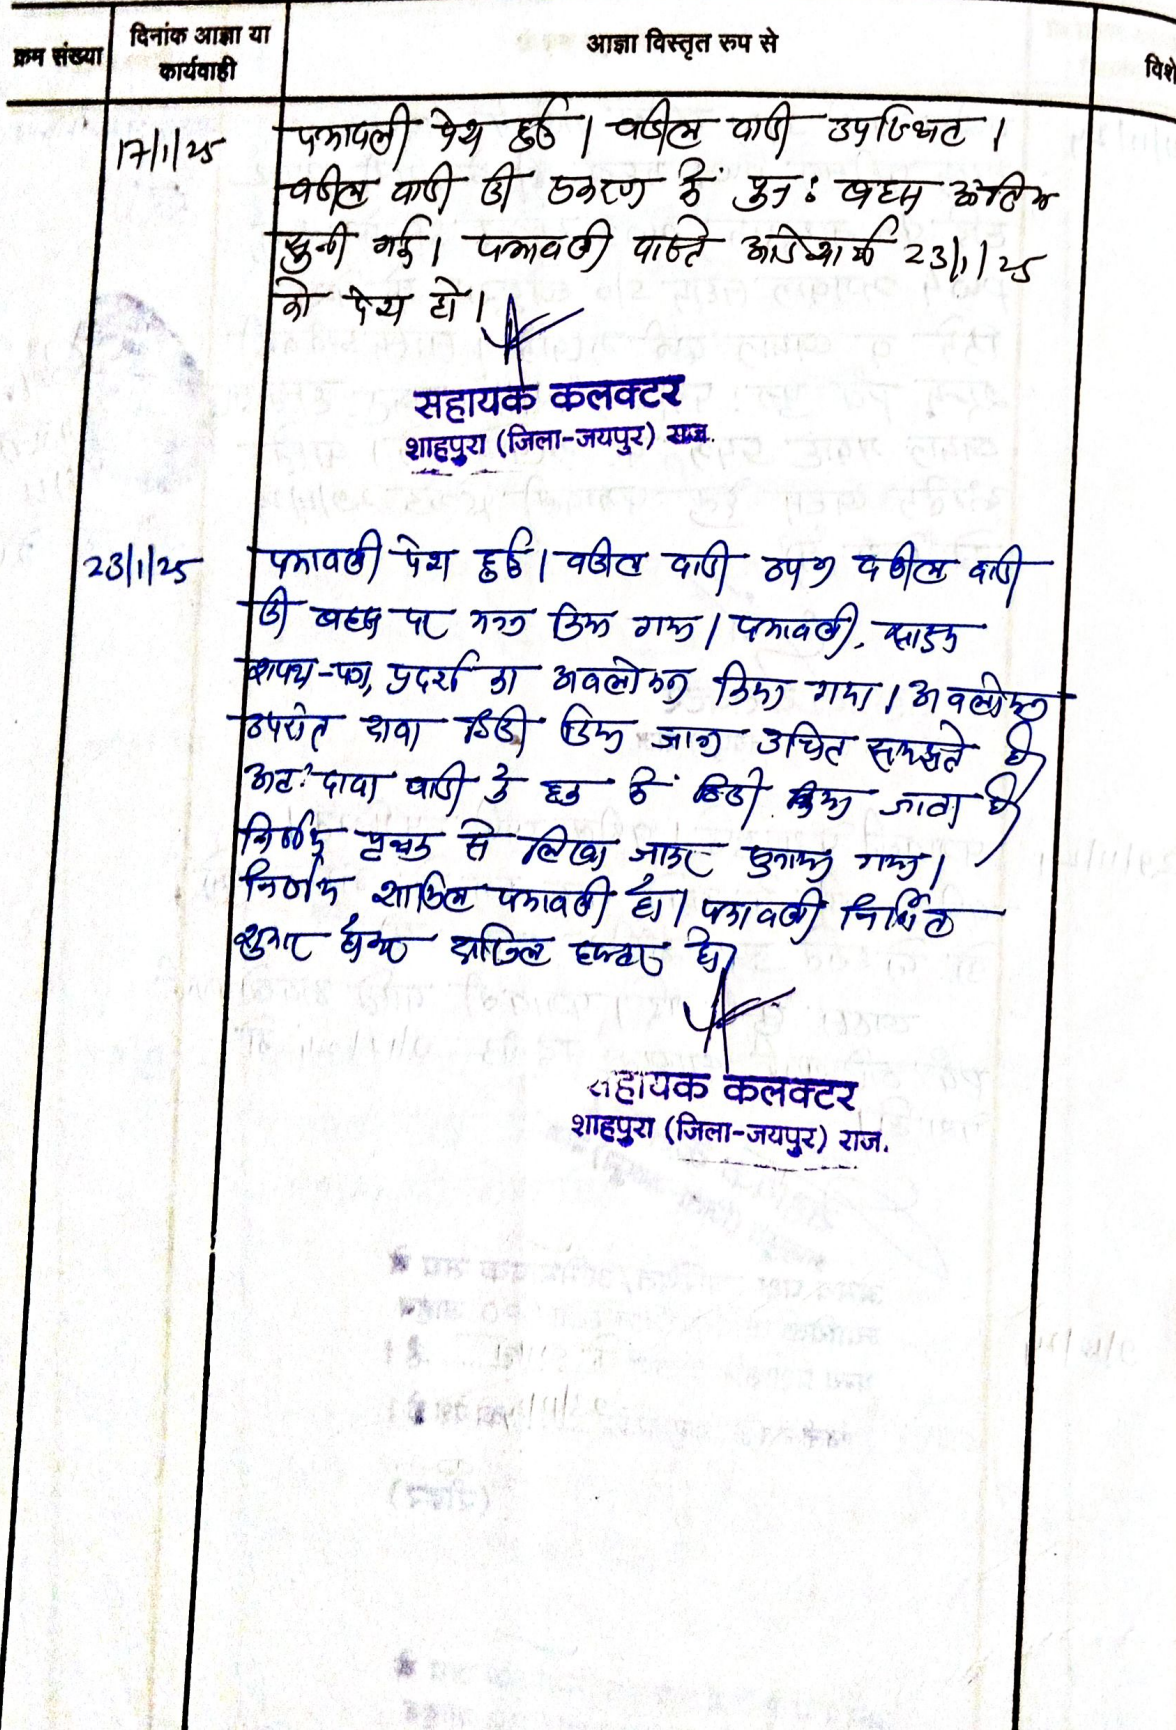 क्रम संख्या
दिनांक आज्ञा या
कार्यवाही
आज्ञा विस्तृत रुप से
विशे
17/1/25
पत्रावली पेश हुई। वकील वादी उपस्थित।
वकील वादी की प्रकरण में पुनः बहस अंतिम
सुनी गई। पत्रावली वास्ते आदेशार्थ 23/1/25
को पेश हो।
सहायक कलक्टर
शाहपुरा (जिला-जयपुर) राज.
23/1/25
पत्रावली पेश हुई। वकील वादी उप० वकील वादी
की बहस पर मनन किया गया। पत्रावली, साक्ष्य
शपथ-पत्र, प्रदर्श का अवलोकन किया गया। अवलोकन
उपरांत दावा डिक्री किया जाना उचित समझते है
अतः दावा वादी के हक में डिक्री किया जाता है
निर्णय पृथक से लिखा जाकर सुनाया गया।
निर्णय शामिल पत्रावली हो। पत्रावली निर्णित
शुमार होकर दाखिल दफ्तर हो
सहायक कलक्टर
शाहपुरा (जिला-जयपुर) राज.